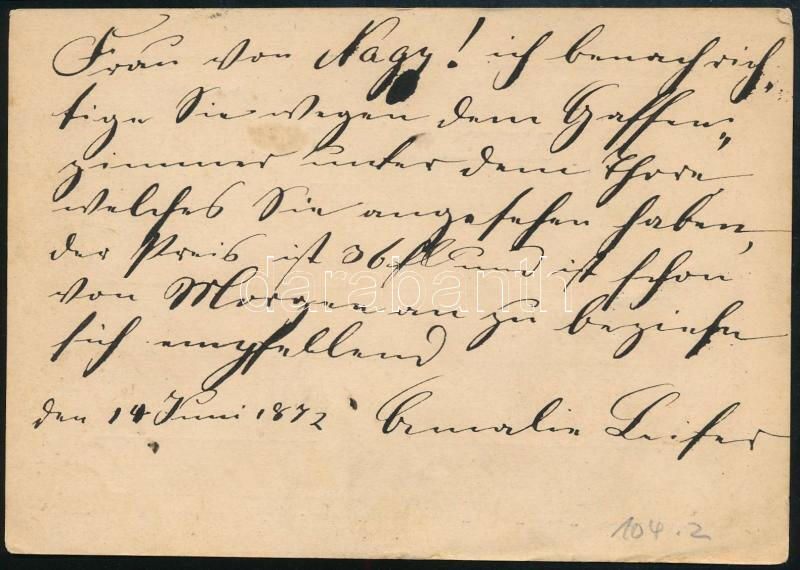 Frau von Nagy! ich benachrich„
tige Sie wegen dem Gassen„
zimmer unter dem Thore,
welches Sie angesehen haben,
der Preis ist 36 fl und ist schon
von Morgen an zu beziehn
sich empfellend
den 14 Juni 1872 Amalie
104.2
darabanth